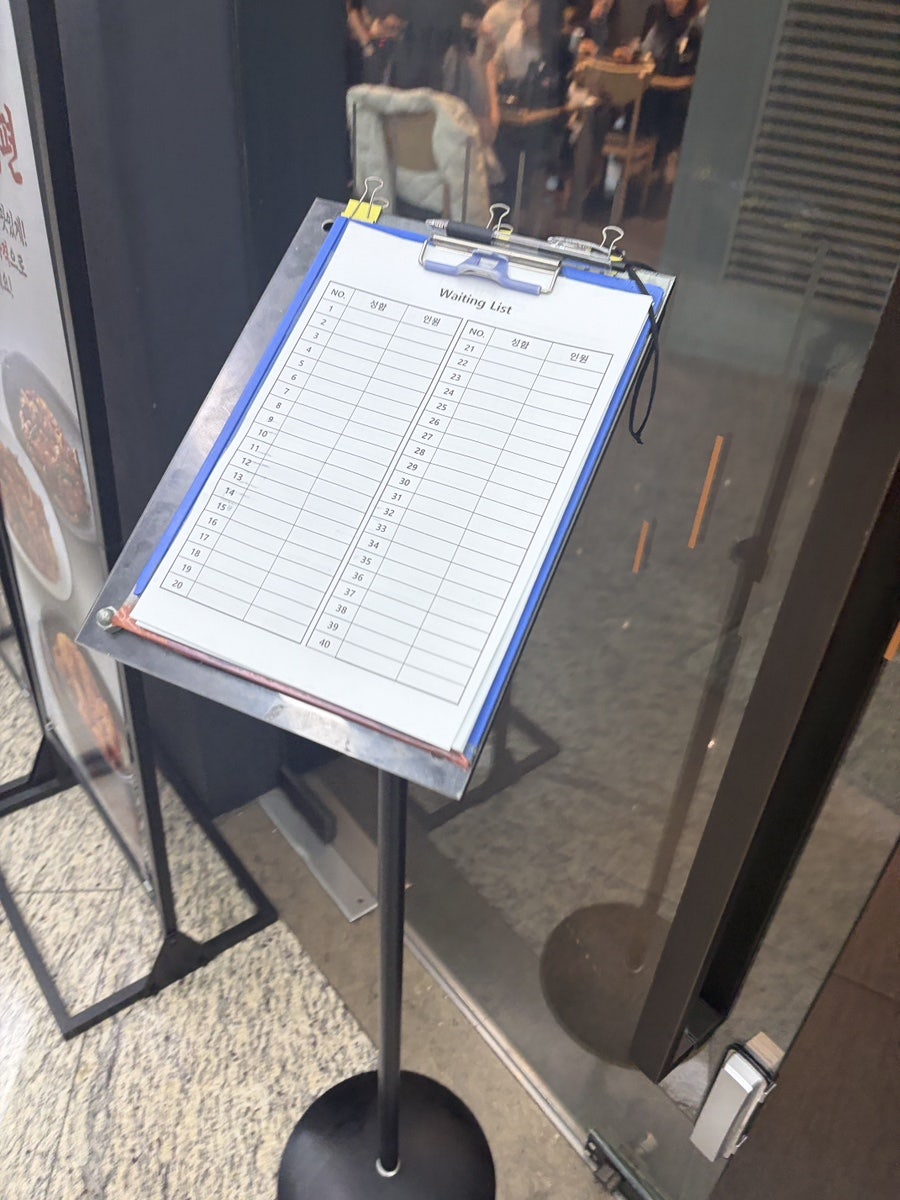 Waiting List
NO. 성함 인원
1
2
3
4
5
6
7
8
9
10
11
12
13
14
15
16
17
18
19
20
NO. 성함 인원
21
22
23
24
25
26
27
28
29
30
31
32
33
34
35
36
37
38
39
40